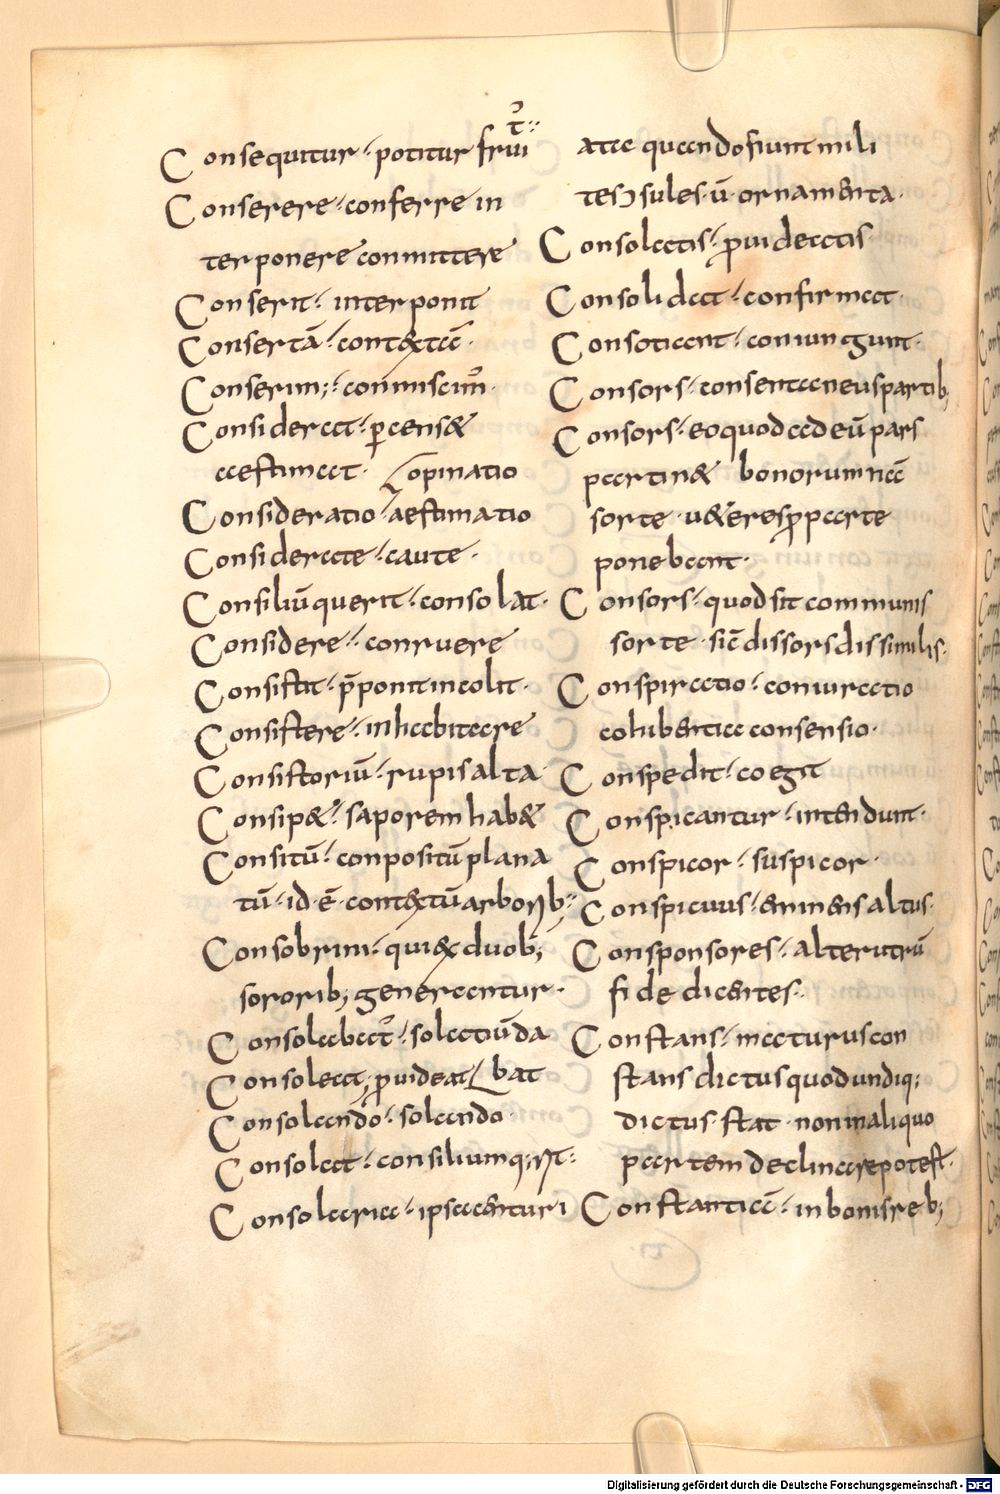 Consequitur · potitur frui
t᷒
Conserere · conferre in
terponere conmittere
Conserit · interponit
Consertā · contextā
Conserim; · conmiscim᷒
Considerat · ꝑcenset
aestimat · opinatio
Consideratio · aestimatio
Considerate · caute ·
Consiliū querit · consolat ·
Considere · conruere
Consistit · p̄ponit incolit ·
Consistere · inhabitare
Consistoriū · rupis alta
Consipet · saporem habet
Consitū · conpositū plana
tū · id · ē · contextū arborib;
Consobrini · qui ex duob;
sororib; generantur ·
Consolabat᷒ · solatiū da
Consolat · ꝓuideat bat
Consolando · solando ·
Consolat · consilium q;rit
Consolaria · ipsa centuri
atae quando fiunt mili
tes · ɔsules · ū · ornamenta ·
Consolatis · ꝓuideatis
Consolidat · confirmat ·
Consotiant · coniungunt ·
Consors · consentaneus partib;
Consors · eo quod ad eū pars
partinet bonorum nā
sorte · ueteres ꝓ parte
ponebant ·
Consors · quod sit communis
sorte · sic̄ dissors dissimilis ·
Conspiratio · coniuratio
cohibentia consensio ·
Conspedit · coegit
Conspicantur · intendunt ·
Conspicor · suspicor ·
Conspicuus · eminens altus
Consponsores · alterutrū
fide dicentes ·
Constans · maturus con
stans dictus quod undiq;
dictus · stat · non in aliquo
partem declinare potest ·
Constantiā · in bonis reb;
Digitalisierung gefördert durch die Deutsche Forschungsgemeinschaft - DFG